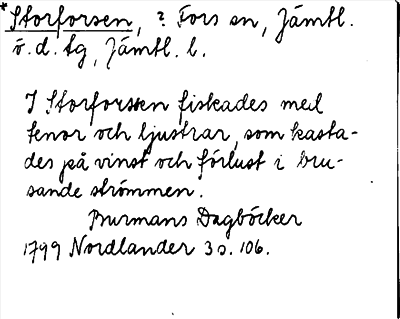 *Storforsen, ? Fors sn, Jämtl.
ö. d. tg, Jämtl. l.
I Storforssen fiskades med
tenor och ljustrar, som kasta-
des på vinst och förlust i bru-
sande strömmen.
Burmans Dagböcker
1799 Nordlander 3 s. 106.